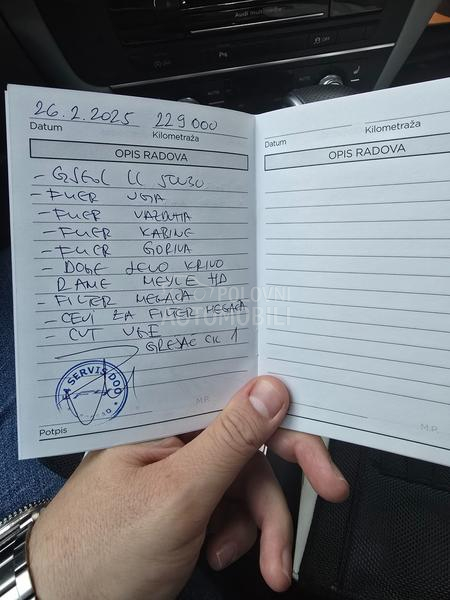 Audi multimedia
OFF
AUTO
26.2.2025 229000
Datum Kilometraža
OPIS RADOVA
- FILTER ULJA
- FILTER VAZDUHA
- FILTER KABINE
- FILTER GORIVA
- DONJE DELO KRIVO
RAME MEYLE HD
- FILTER MEGAČA
- CEVI ZA FILTER MEGAČA
GREJAČ CIL 1
SERVIS DOO
Potpis M.P.
Datum Kilometraža
OPIS RADOVA
M.P.
POLOVNI
AUTOMOBILI